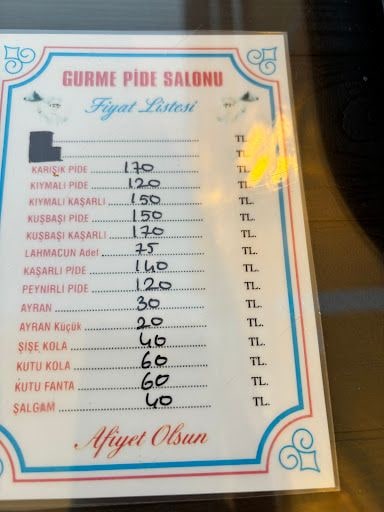 GURME PİDE SALONU
Fiyat Listesi
TL.
TL.
KARIŞIK PİDE 170 TL.
KIYMALI PİDE 120 TL.
KIYMALI KAŞARLI 150 TL.
KUŞBAŞI PİDE 150 TL.
KUŞBAŞI KAŞARLI 170 TL.
LAHMACUN Adet 75 TL.
KAŞARLI PİDE 140 TL.
PEYNİRLİ PİDE 120 TL.
AYRAN 30 TL.
AYRAN Küçük 20 TL.
ŞİŞE KOLA 40 TL.
KUTU KOLA 60 TL.
KUTU FANTA 60 TL.
ŞALGAM 40 TL.
Afiyet Olsun